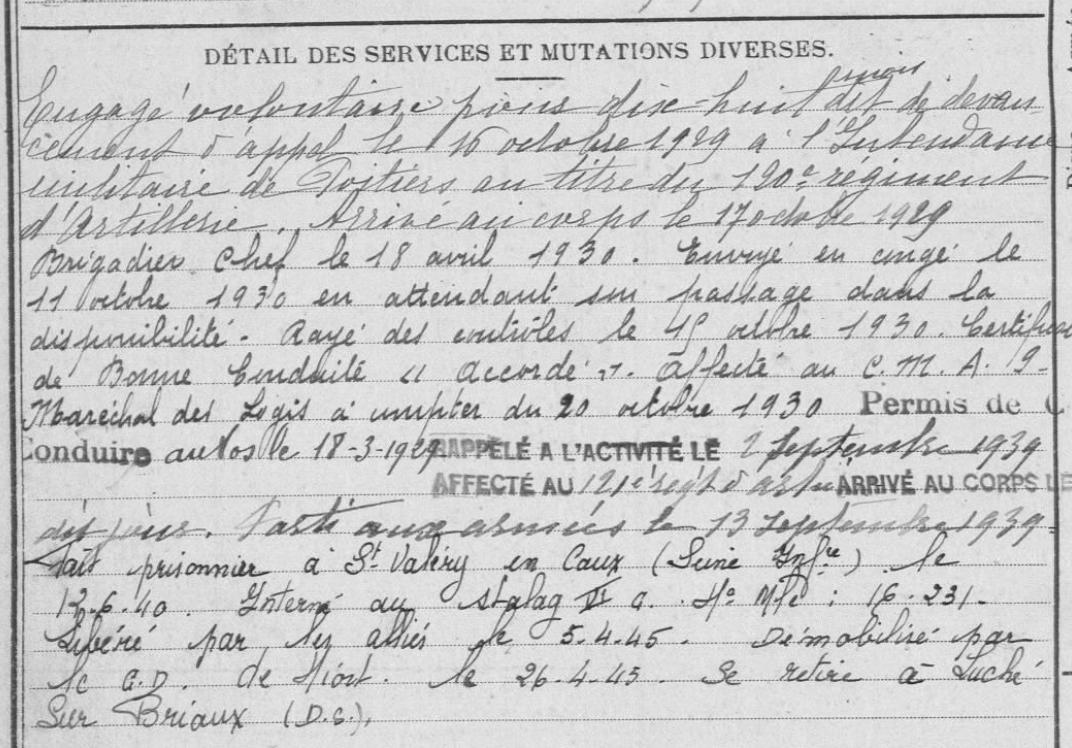 DÉTAIL DES SERVICES ET MUTATIONS DIVERSES.
Engagé volontaire pour dix-huit mois dit de devan
cement d'appel le 16 octobre 1929 à l'Intendance
militaire de Poitiers au titre du 120e régiment
d'Artillerie. Arrivé au corps le 17 octobre 1929
Brigadier Chef le 18 avril 1930. Envoyé en congé le
11 octobre 1930 en attendant son passage dans la
disponibilité. Rayé des contrôles le octobre 1930. Certificat
de Bonne Conduite "accordé". Affecté au C. M. A. 9-
Maréchal des Logis à compter du 20 octobre 1930 Permis de C
Conduire autos le 18-3-1929 RAPPELÉ A L'ACTIVITÉ LE 2 Septembre 1939
AFFECTÉ AU 121e régt d'artie ARRIVÉ AU CORPS LE
dit jour. Parti aux armées le 13 Septembre 1939-
Fait prisonnier à St Valéry en Caux (Seine Infre) le
12.6.40. Interné au stalag VI a. No Mle : 16.231-
Libéré par les alliés le 5.4.45. Démobilisé par
le C.D. de Niort. le 26.4.45. Se retire à Luché
Sur Brioux (D.S.).